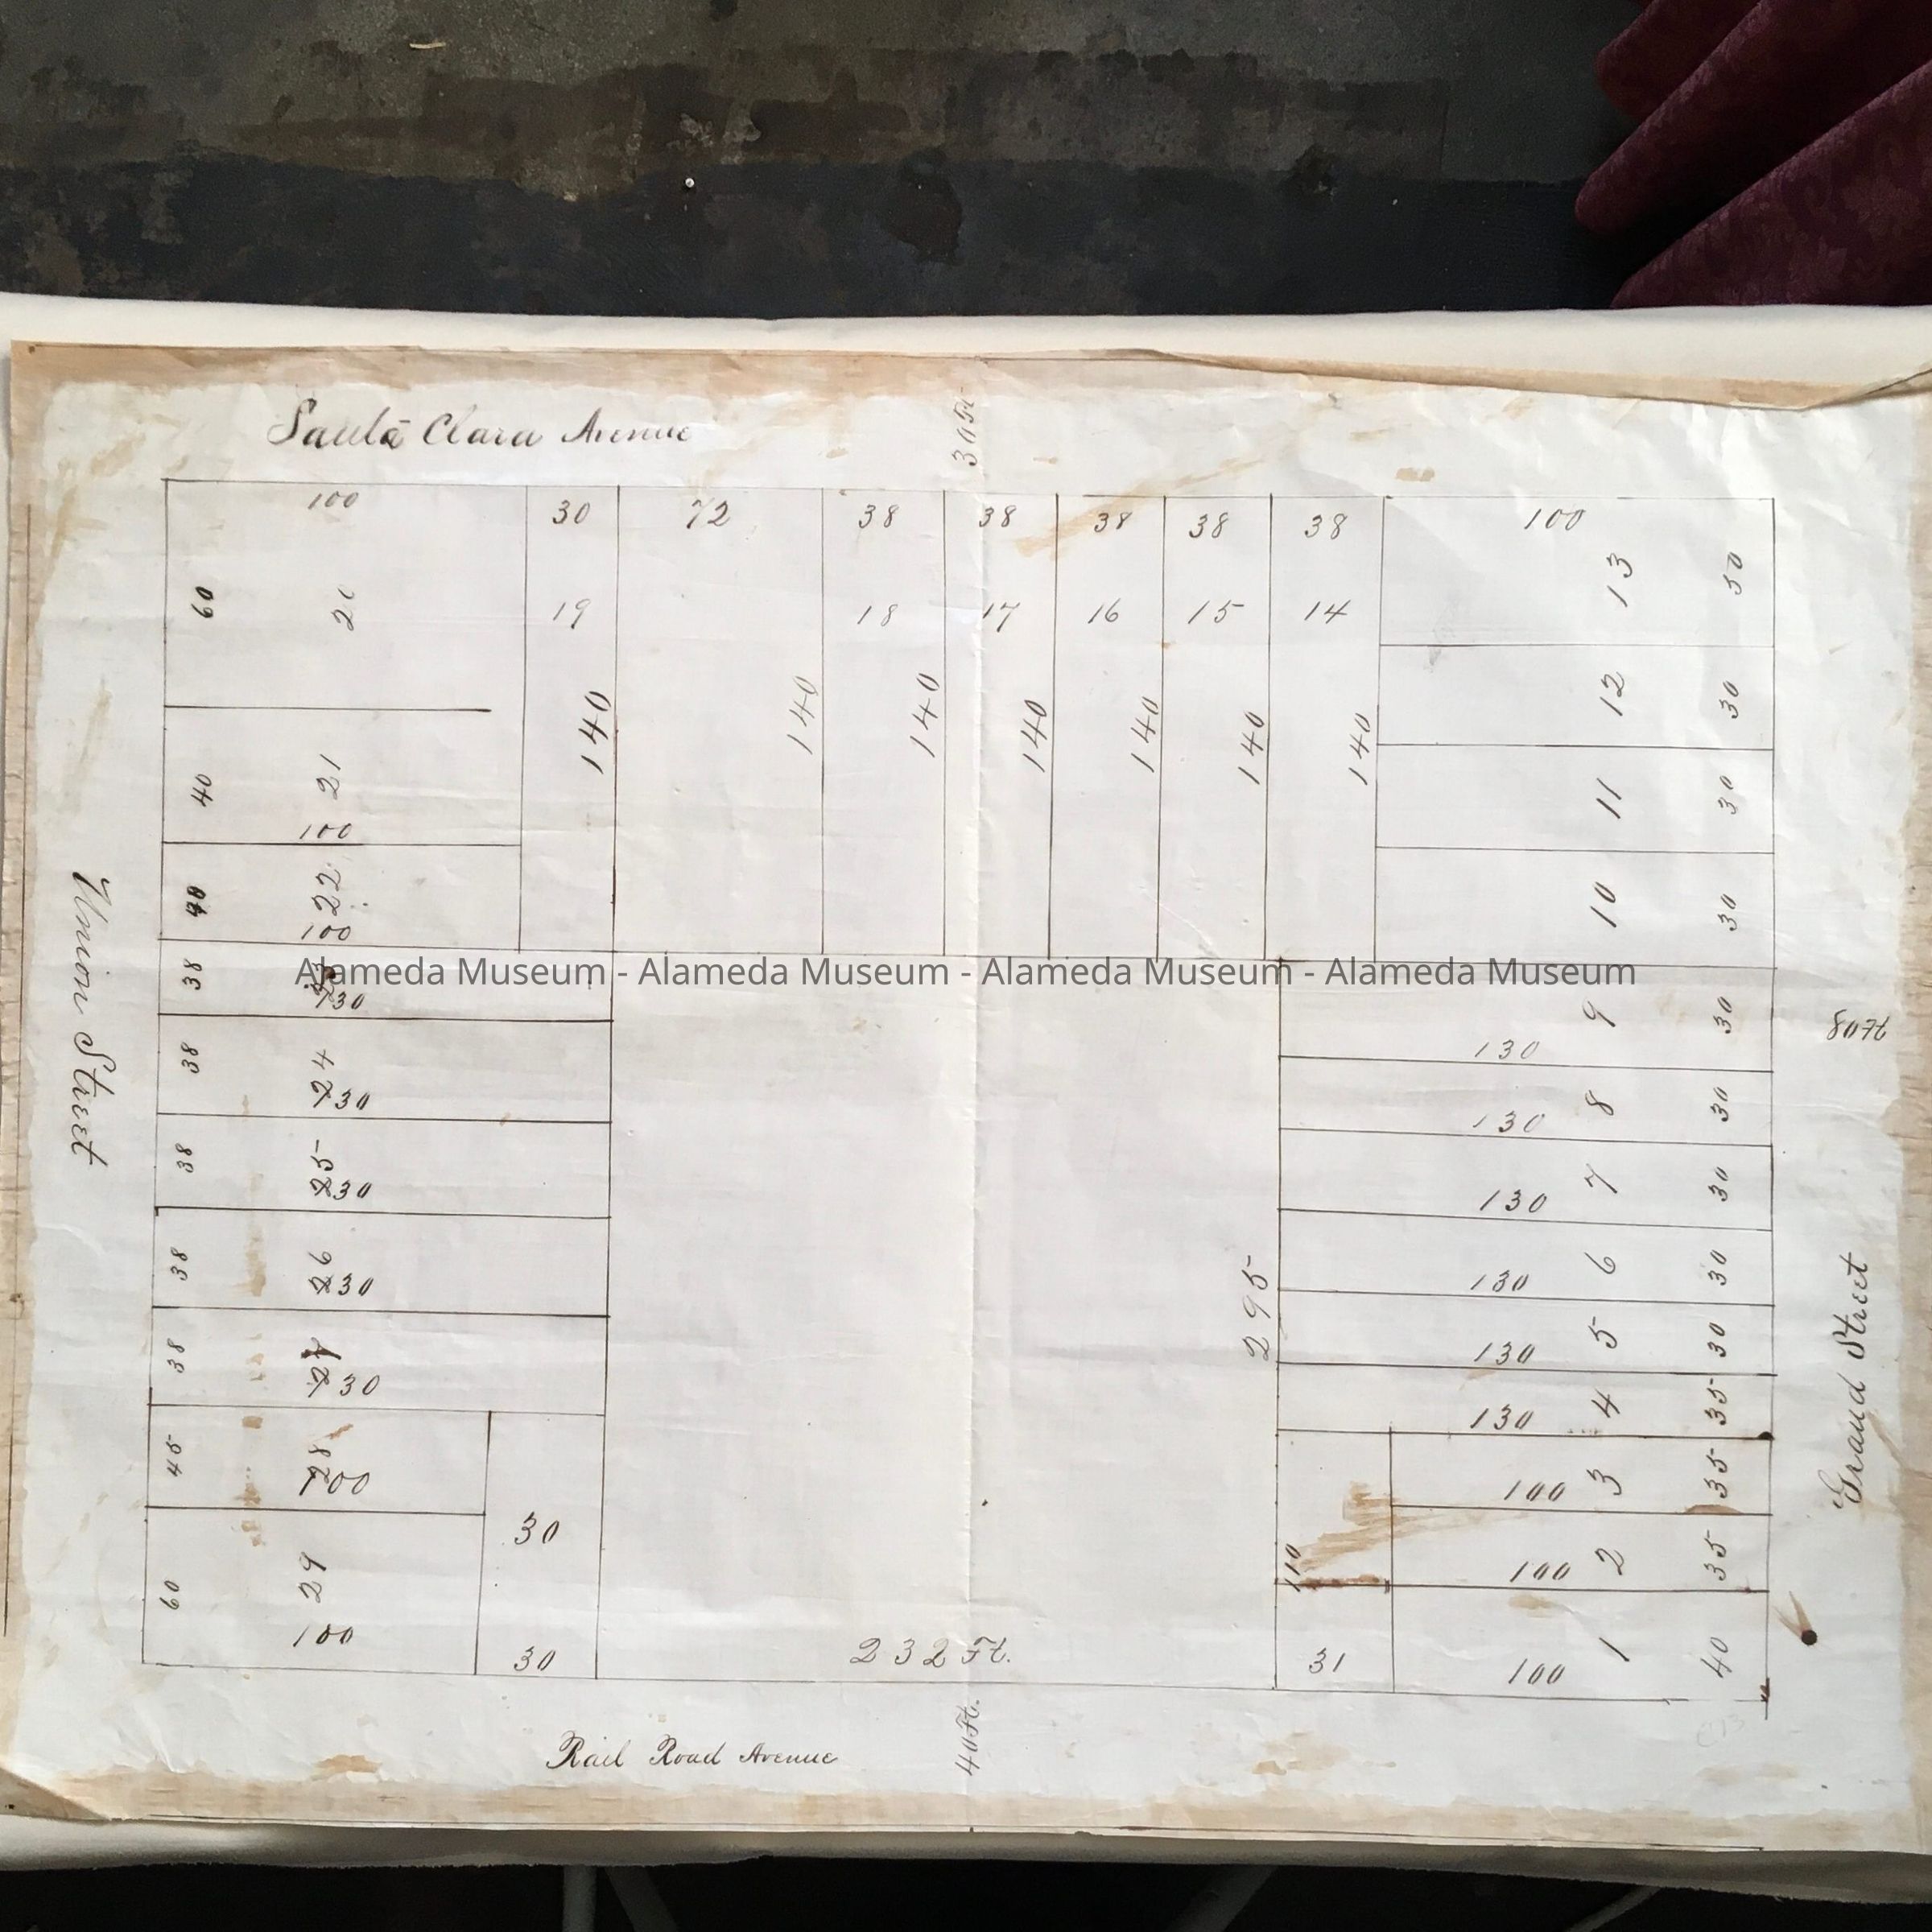 Santa Clara Avenue
30 Ft
100 30 72 38 38 38 38 38 100
60 19 18 17 16 15 14 13 50
140 140 140 140 140 140 140
12 30
40 21 11 30
100
40 22 10 30
100
Alameda Museum - Alameda Museum - Alameda Museum - Alameda Museum
38 130 9 30
130
80 Ft
38 24 8 30
130 130
38 25 7 30
130 130
38 26 6 30
130 130
295
38 27 5 30
130 130
4 35
130
45 28 3 35
100 100
30
110 2 35
100
60 29 1 40
100
30 232 Ft. 31 100
Union Street
Grand Street
40 Ft.
Rail Road Avenue